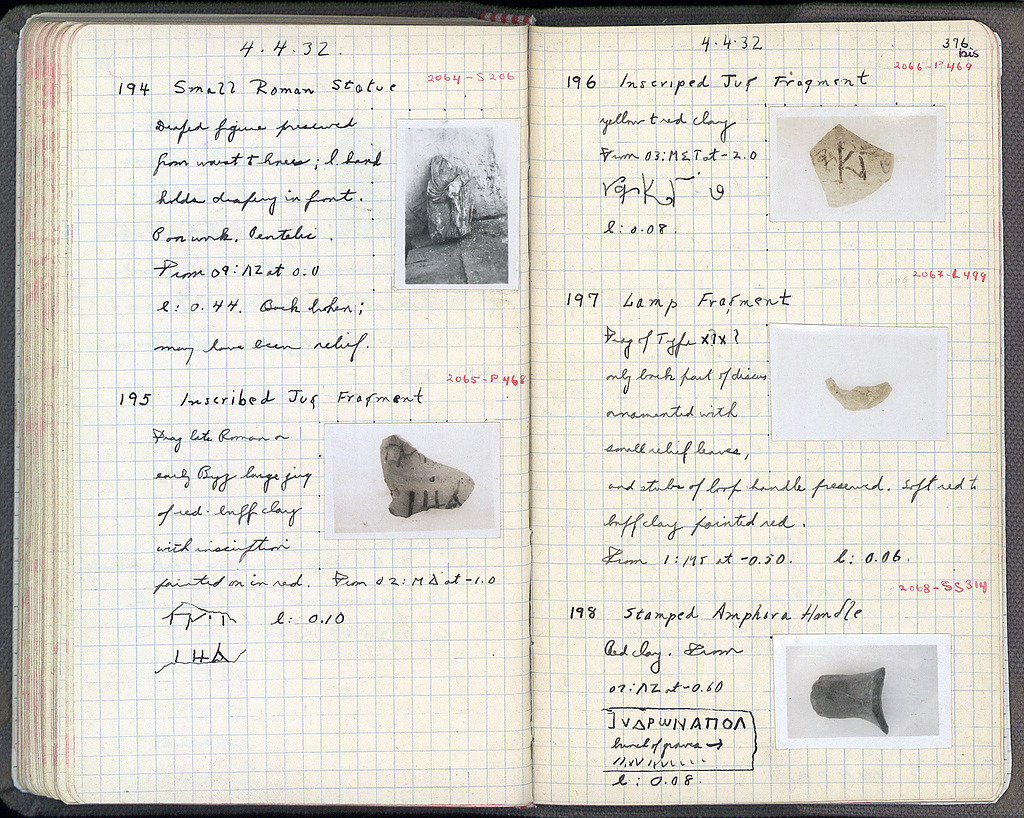 4.4.32.
2064-S206
194 Small Roman Statue
Draped figure preserved
from waist to knees; l. hand
holds drapery in front.
Poor work. Pentelic.
From 09:ΛΖ at 0.0
l: 0.44. Back broken;
may have been relief.
2065-P468
195 Inscribed Jug Fragment
Frag late Roman or
early Byz large jug
of red-buff clay
with inscription
painted on in red. From 02:ΜΔ at -1.0
l: 0.10
ΙΗΔ
4.4.32
376
bis
2066-P469
196 Inscriped Jug Fragment
yellow to red clay
From 03:ΜΣΤ at -2.0
l: 0.08.
2067-L499
197 Lamp Fragment
Frag of Type
only back part of discus
ornamented with
small relief leaves,
and stubs of loop handle preserved. Soft red to
buff clay painted red.
From at -0.50. l: 0.06.
2068-SS314
198 Stamped Amphora Handle
Red clay. From
07:ΛΖ at -0.60
ΥΔΡΩΝΑΠΟΛ
bunch of grapes →
l: 0.08.